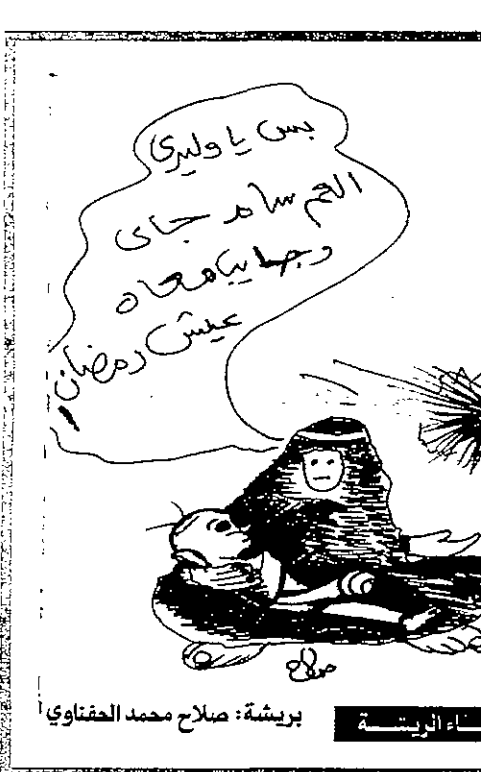 بس يا وليدى
العم سام جاى
وجايب معاه
عيش رمضان!
صلاح
بريشة: صلاح محمد الحفناوي
ـناء الريشـــة